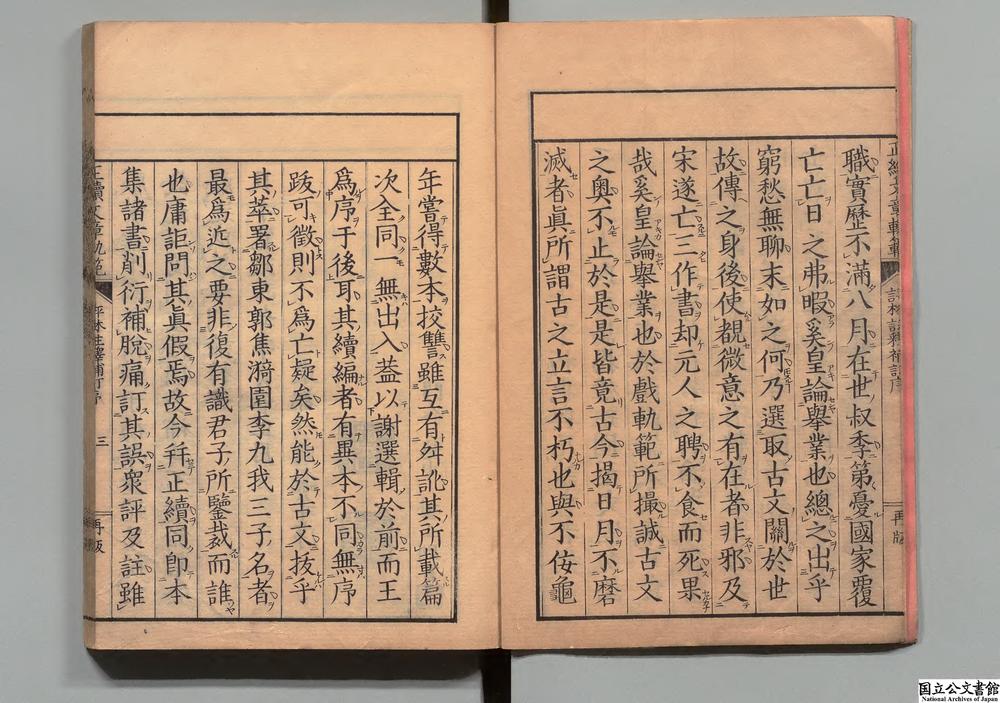 職實歷不滿八月在世叔季第憂國家覆
亡亡日之弗暇奚皇論舉業也總之出乎
窮愁無聊末如之何乃選取古文關於世
故傳之身後使覩微意之有在者非邪及
宋遂亡三作書却元人之聘不食而死果
哉奚皇論舉業也於戲軌範所撮誠古文
之奧不止於是是皆竟古今揭日月不磨
滅者眞所謂古之立言不朽也與不佞龜
年嘗得數本挍讐雖互有舛訛其所載篇
次全同一無出入葢以謝選輯於前而王
爲序于後耳其續編者有異本不同無序
跋可徵則不爲亡疑矣然能於古文拔乎
其萃署鄒東郭焦漪園李九我三子名者
最爲近之要非復有識君子所鑒裁而誰
也庸詎問其眞假焉故今幷正續同卽本
集諸書削衍補脫痛訂其誤衆評及註雖
三
再版
再版
国立公文書館
National Archives of Japan